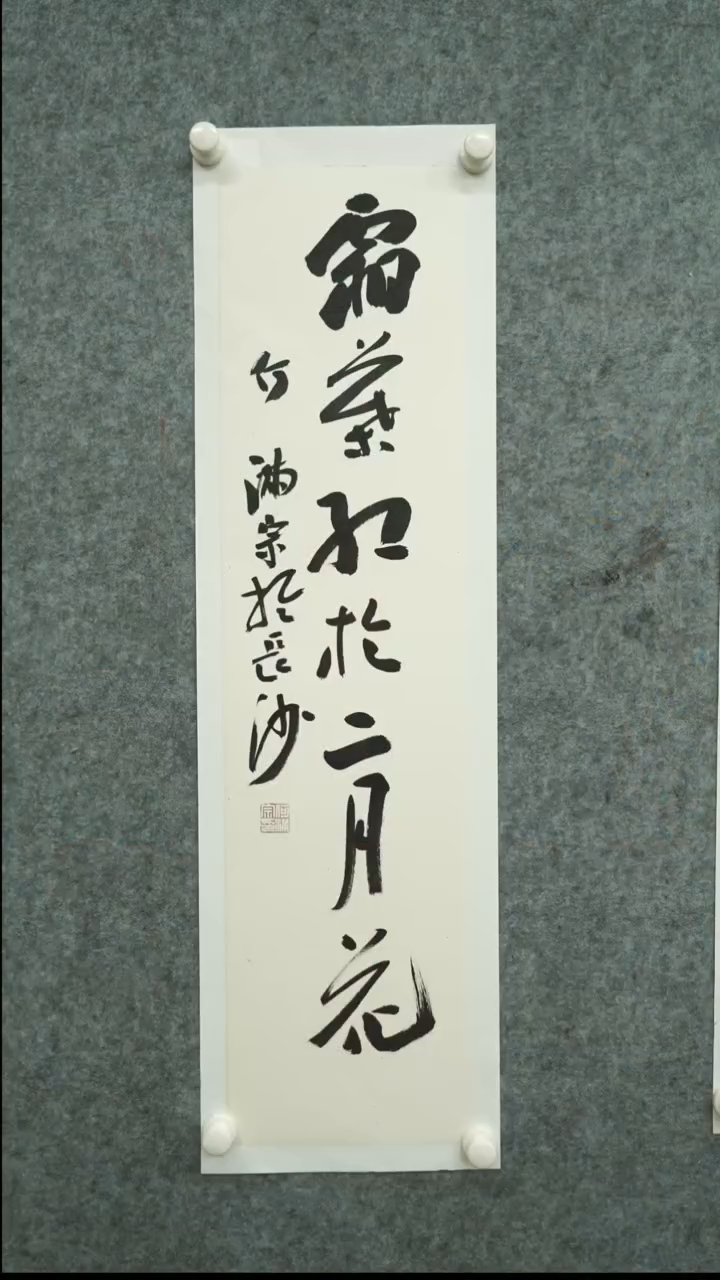 霜葉紅於二月花
何满宗於長沙